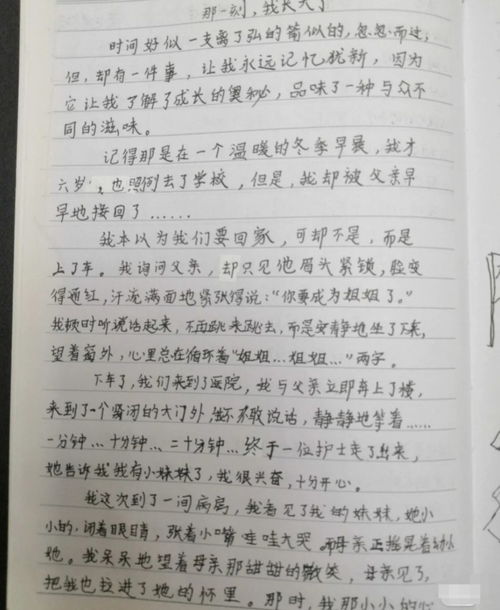 那一刻，我长大了
时间好似一支离了弘的箭似的，忽忽而过，
但，却有一件事，让我永远记忆犹新，因为
它让我了解了成长的奥秘，品味了一种与众不
同的滋味。
记得那是在一个温暖的冬季早晨，我才
六岁，也照例去了学校，但是，我却被父亲早
早地接回了……
我本以为我们要回家，可却不是，而是
上了车。我询问父亲，却只见他眉头紧锁，脸变
得通红，汗流满面地紧张得说：“你要成为姐姐了。”
我顿时听说话起来，不再跳来跳去，而是安静地坐了下来，
望着窗外，心里总在循环着“姐姐…姐姐…”两字。
下车了，我们来到了医院，我与父亲立即奔上了楼，
来到了一个紧闭的大门外，我不敢说话，静静地等着……
一分钟…十分钟…二十分钟…终于一位护士走了出来，
她告诉我我有小妹妹了，我很兴奋，十分开心。
我这次到了一间病房，我看见了我的妹妹，她小
小的，闭着眼睛，张着小嘴哇哇大哭，而母亲正摇晃着幼小
她。我呆呆地望着母亲那甜甜的微笑，母亲见了，
把我也拉进了她的怀里。那时，我那小小的心